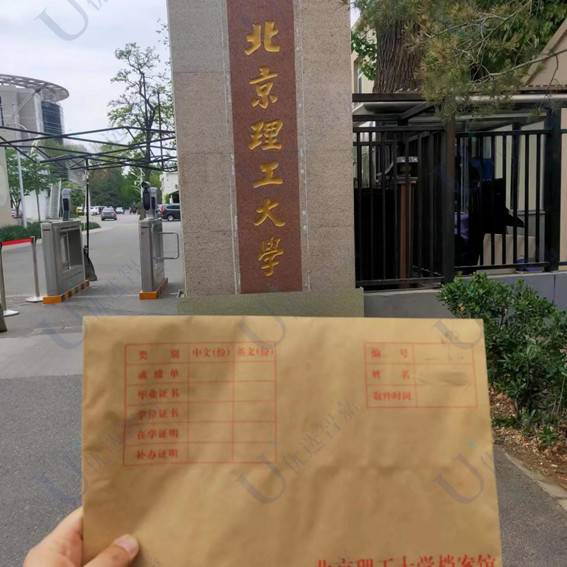 北京理工大學
类 别 中文(份) 英文(份)
成绩单
毕业证书
学位证书
在学证明
补办证明
编 号
姓 名
取件时间
北京理工大学档案馆